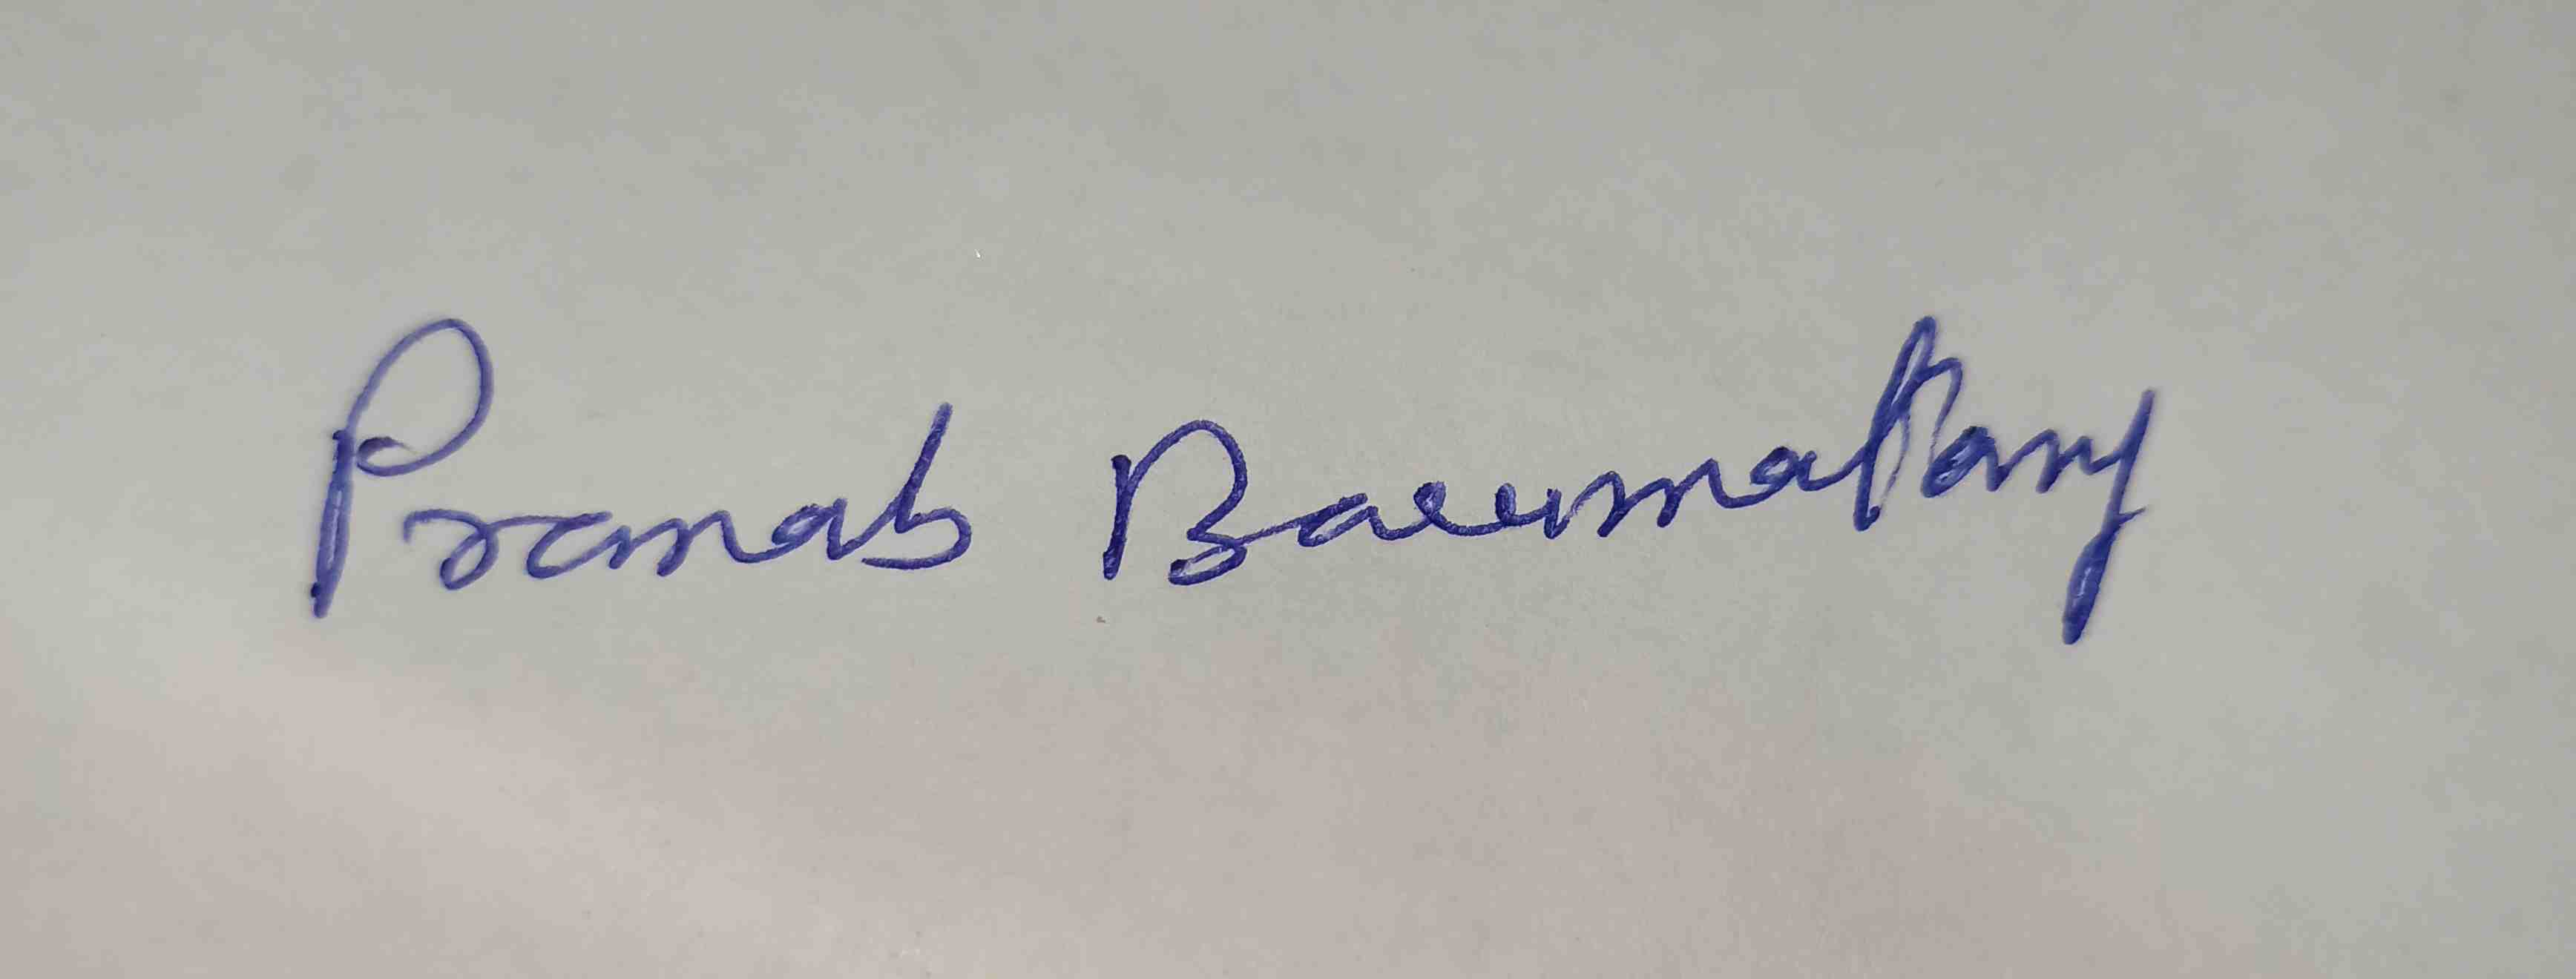 Pranab Basumatary